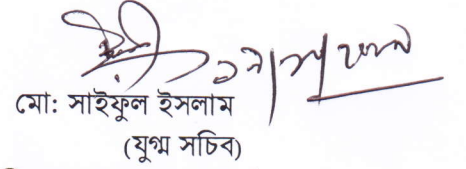 মো: সাইফুল ইসলাম
(যুগ্ম সচিব)